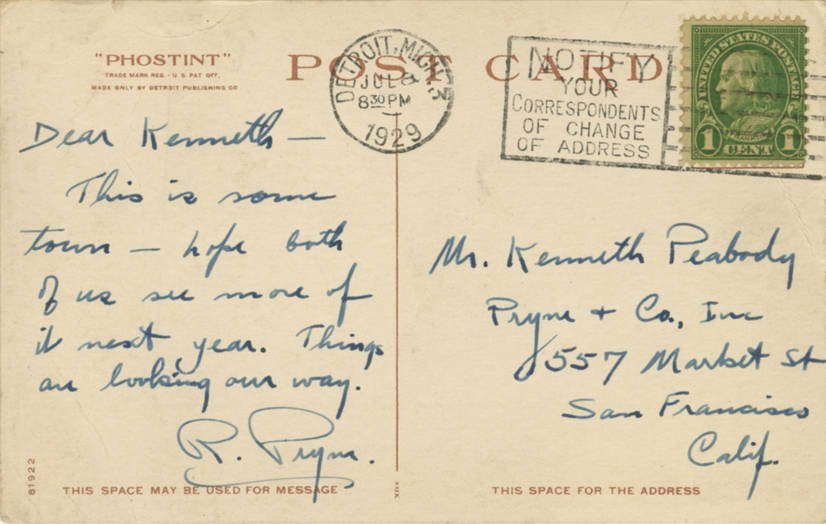 "PHOSTINT"
TRADE MARK REG. - U.S. PAT OFF.
MADE ONLY BY DETROIT PUBLISHING CO
POST CARD
DETROIT, MICH.
JUL
8 30 PM
1929
NOTIFY
YOUR
CORRESPONDENTS
OF CHANGE
OF ADDRESS
UNITED STATES POSTAGE
1 CENT 1
Dear Kenneth —
This is some
town — hope both
of us see more of
it next year. Things
are looking our way.
R. Pryne.
Mr. Kenneth Peabody
Pryne + Co., Inc
557 Market St
San Francisco
Calif.
81922
THIS SPACE MAY BE USED FOR MESSAGE
THIS SPACE FOR THE ADDRESS